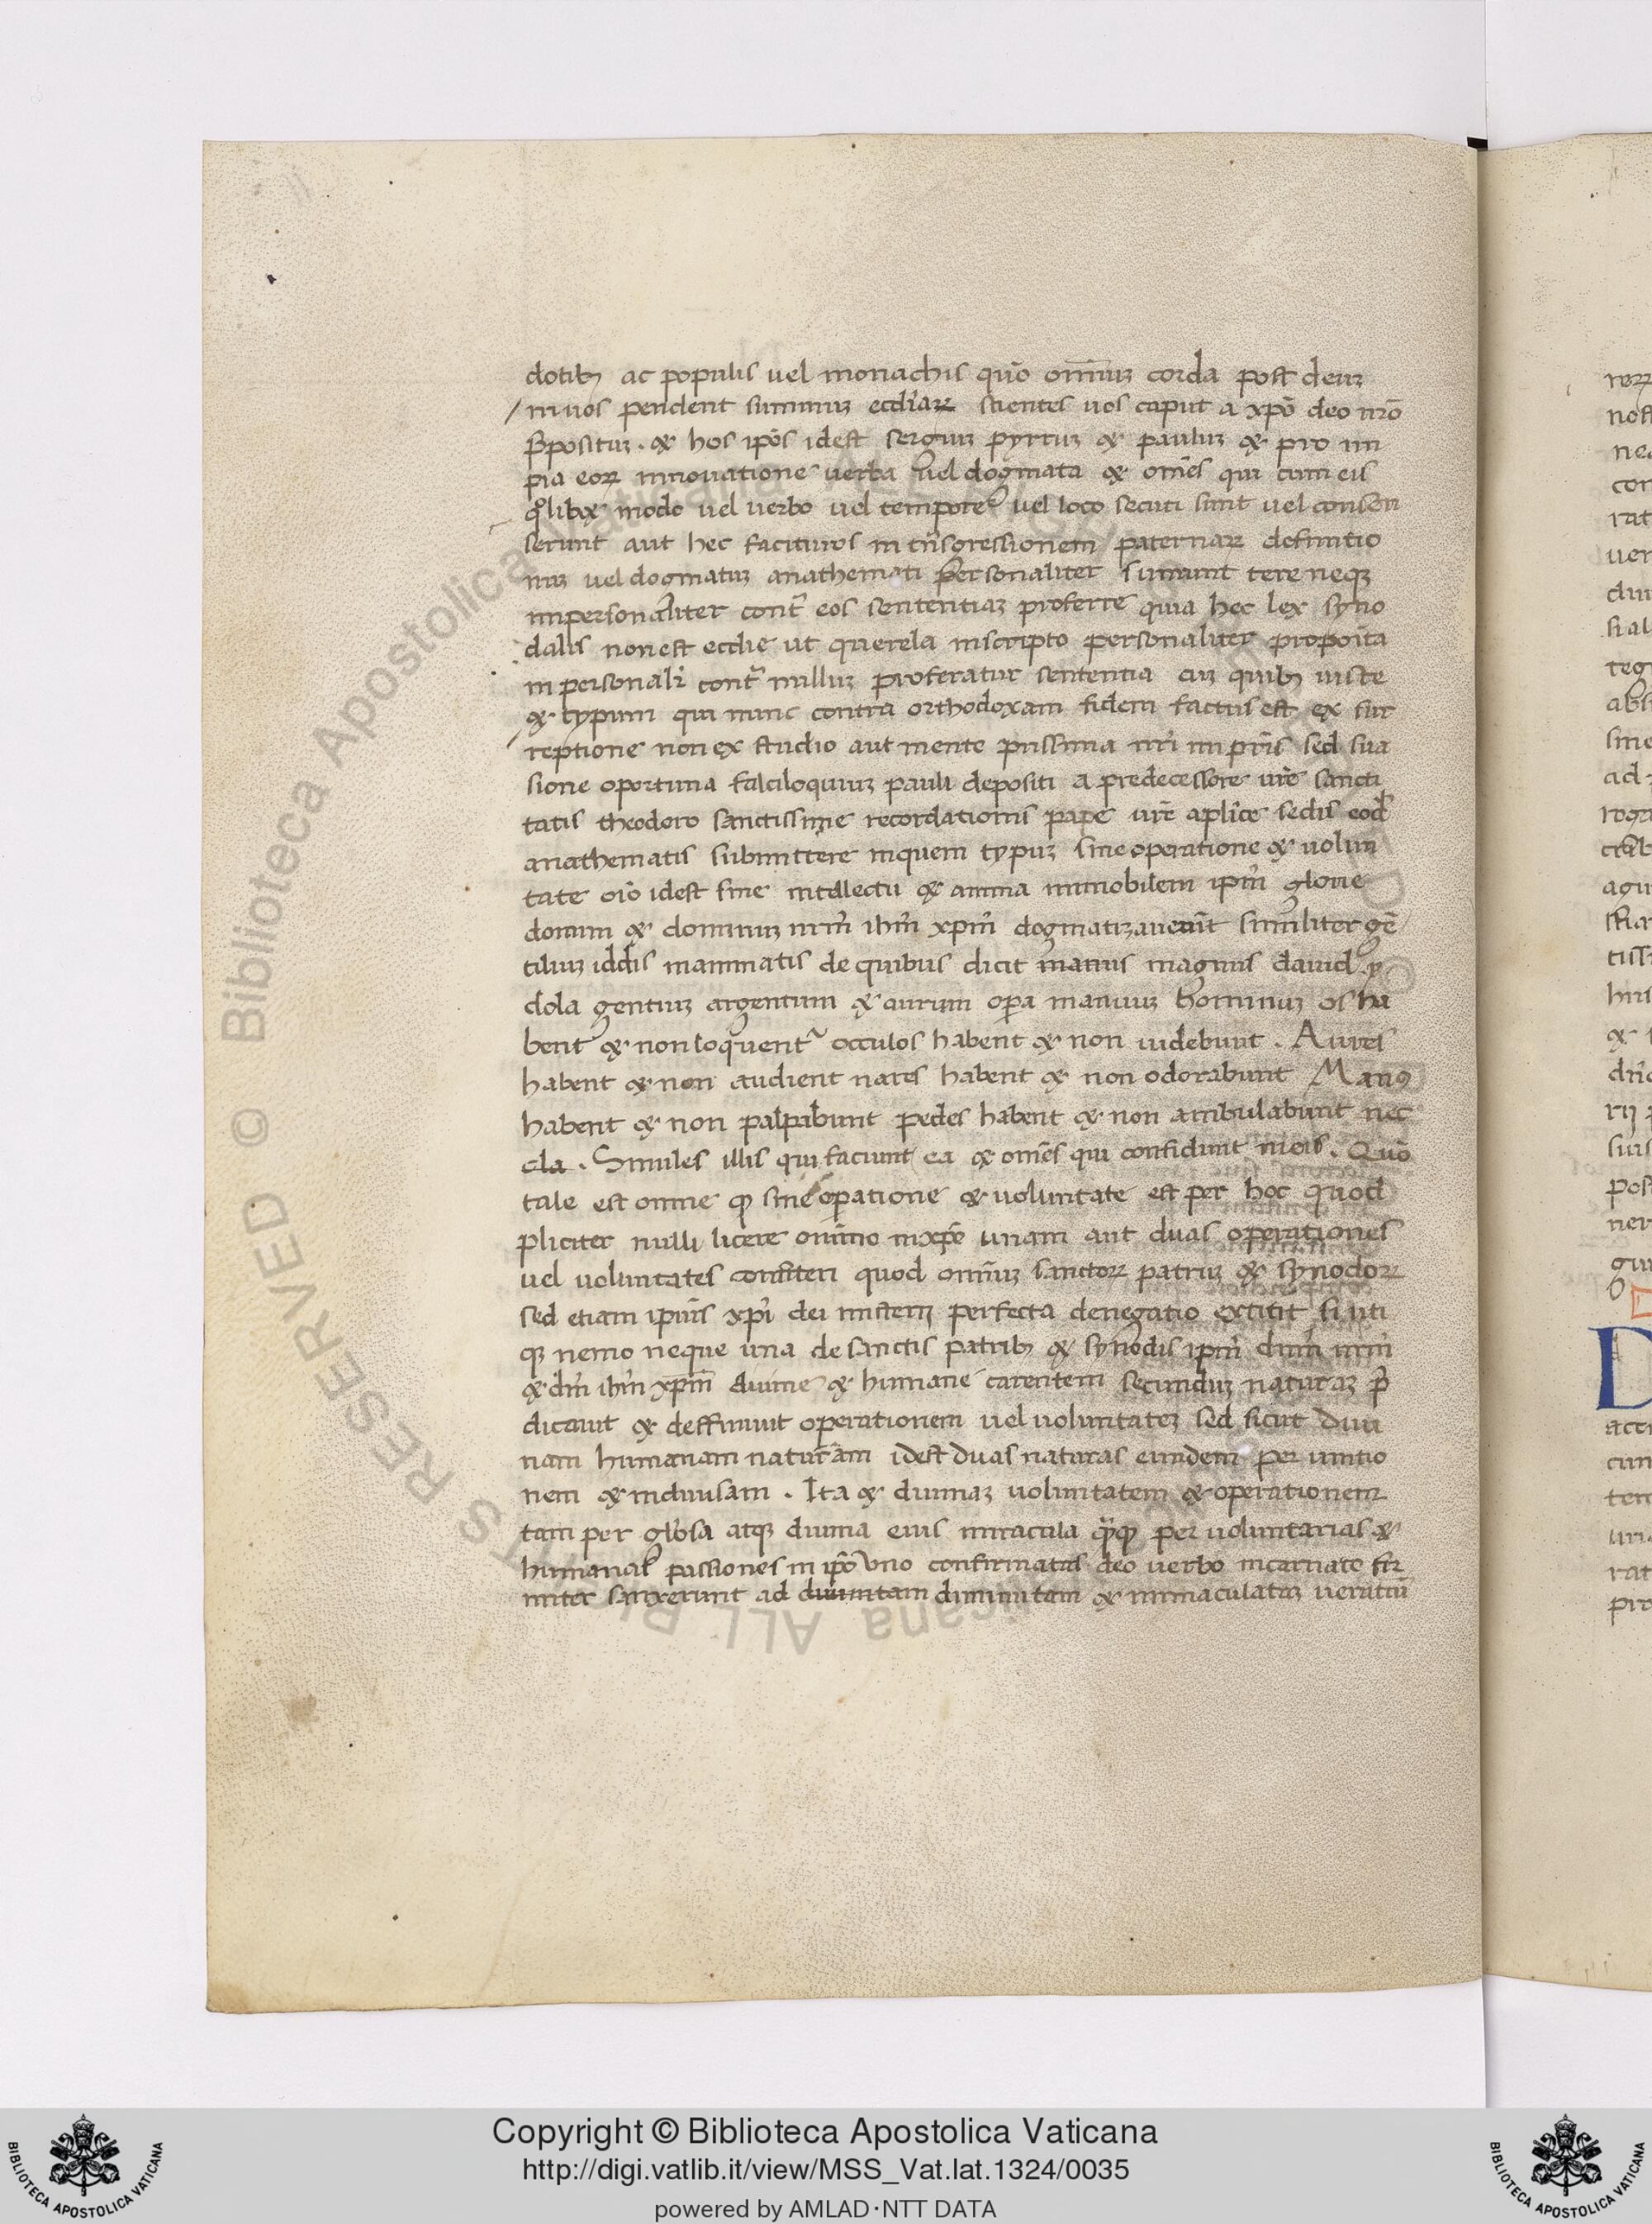 dotibꝫ ac populis uel monachis quō om̄iuꝫ corda post deuꝫ
in uos pendent summuꝫ eccl̄iaꝝ scientes uos caput a xp̄o deo nr̄o
p̄posituꝫ. & hos ip̄os idest sergiuꝫ pyrruꝫ & pauluꝫ & pro im
pia eoꝝ innouatione uerba uel dogmata & om̄es qui cum eis
qͦlibet modo uel uerbo uel tempore uel loco secuti sunt uel consen
serunt aut hec facituros in tn̄sgressionem paternaꝝ definitio
nuꝫ uel dogmatuꝫ anathemati personaliter summittere neqꝫ
impersonaliter contr̄ eos sententiaꝫ proferre quia hec lex syno
dalis non est eccl̄ie ut querela inscripto personaliter propoita
in personali contr̄ nulluꝫ proferatur sententia cuꝫ quibꝫ iuste
& typum qui nunc contra orthodoxam fidem factus est ex sur
reptione non ex studio aut mente piissima nr̄i im pr̄is sed sua
sione oportuna falciloquiuꝫ pauli depositi a predecessore ur̄e sancti
tatis theodoro sanctissime recordationis pape ur̄e ap̄lice sedis eod̄
anathematis submittere inquem typuꝫ sine operatione & uolun
tate oīo idest sine intellectu & anima immobilem ip̄m glorie
donum & dominuꝫ nr̄m ih̄m xp̄m dogmatizauerūt similiter gē
tiliuꝫ idd̄is inanimatis de quibus dicit manus magnus dauid. y
dola gentiuꝫ argentum & aurum opa manuuꝫ hominuꝫ os ha
bent & non loquentr̄ occulos habent & non uidebunt. Aures
habent & non audient nares habent & non odorabunt Manꝰ
habent & non palpabunt pedes habent & non ambulabunt nec
cla. Similes illis qui faciunt ea & om̄es qui confidunt in eis. Quō
tale est omne qꝫ sine opatione & uoluntate est per hoc quod
pliciter nulli licere omnino in xp̄o unam aut duas operationes
uel uoluntates confiteri quod om̄iuꝫ sanctoꝝ patruꝫ & synodoꝝ
sed etiam ipius xp̄i dei misterij perfecta denegatio extitit si uti
qꝫ nemo neque una de sanctis patribꝫ & synodis ip̄m dnm̄ nr̄m
& dm̄ ih̄m xp̄m diuine & humane carentem secunduꝫ naturaꝫ p̄
dicauit & deffiniuit operationem uel uoluntateꝫ sed sicut diui
nam humanam naturam idest duas naturas eiusdem per unitio
nem & indiuisam. Ita & diuinaꝫ uoluntatem & operationem
tam per glosa atqꝫ diuina eius miracula qꝫ per uoluntarias &
humanas passiones in ip̄o uno confirmatas deo uerbo incarnato fir
miter sanxerunt ad diuinitam diminutam & immaculataꝫ ueritatū
Copyright © Biblioteca Apostolica Vaticana
http://digi.vatlib.it/view/MSS_Vat.lat.1324/0035
powered by AMLAD·NTT DATA